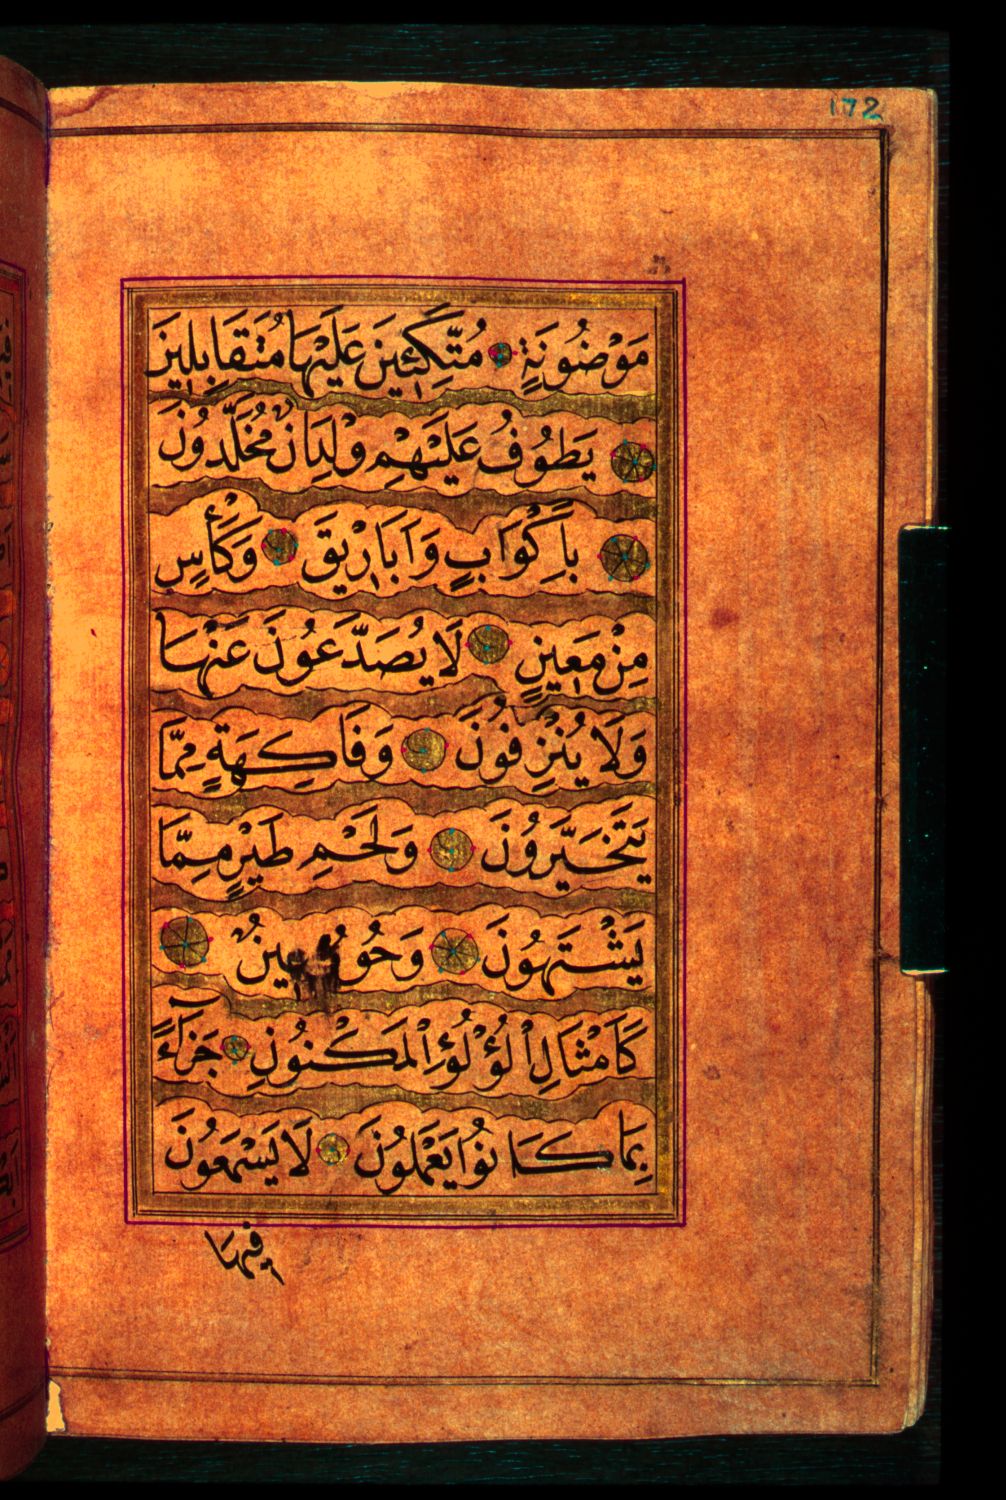 172
مَوْضُونَةٍ مُتَّكِئِينَ عَلَيْهَا مُتَقَابِلِينَ
يَطُوفُ عَلَيْهِمْ وِلْدَانٌ مُخَلَّدُونَ
بِأَكْوَابٍ وَأَبَارِيقَ وَكَأْسٍ
مِنْ مَعِينٍ لَا يُصَدَّعُونَ عَنْهَا
وَلَا يُنْزِفُونَ وَفَاكِهَةٍ مِمَّا
يَتَخَيَّرُونَ وَلَحْمِ طَيْرٍ مِمَّا
يَشْتَهُونَ وَحُورٌ عِينٌ
كَأَمْثَالِ اللُّؤْلُؤِ الْمَكْنُونِ جَزَاءً
بِمَا كَانُوا يَعْمَلُونَ لَا يَسْمَعُونَ
فِيهَا